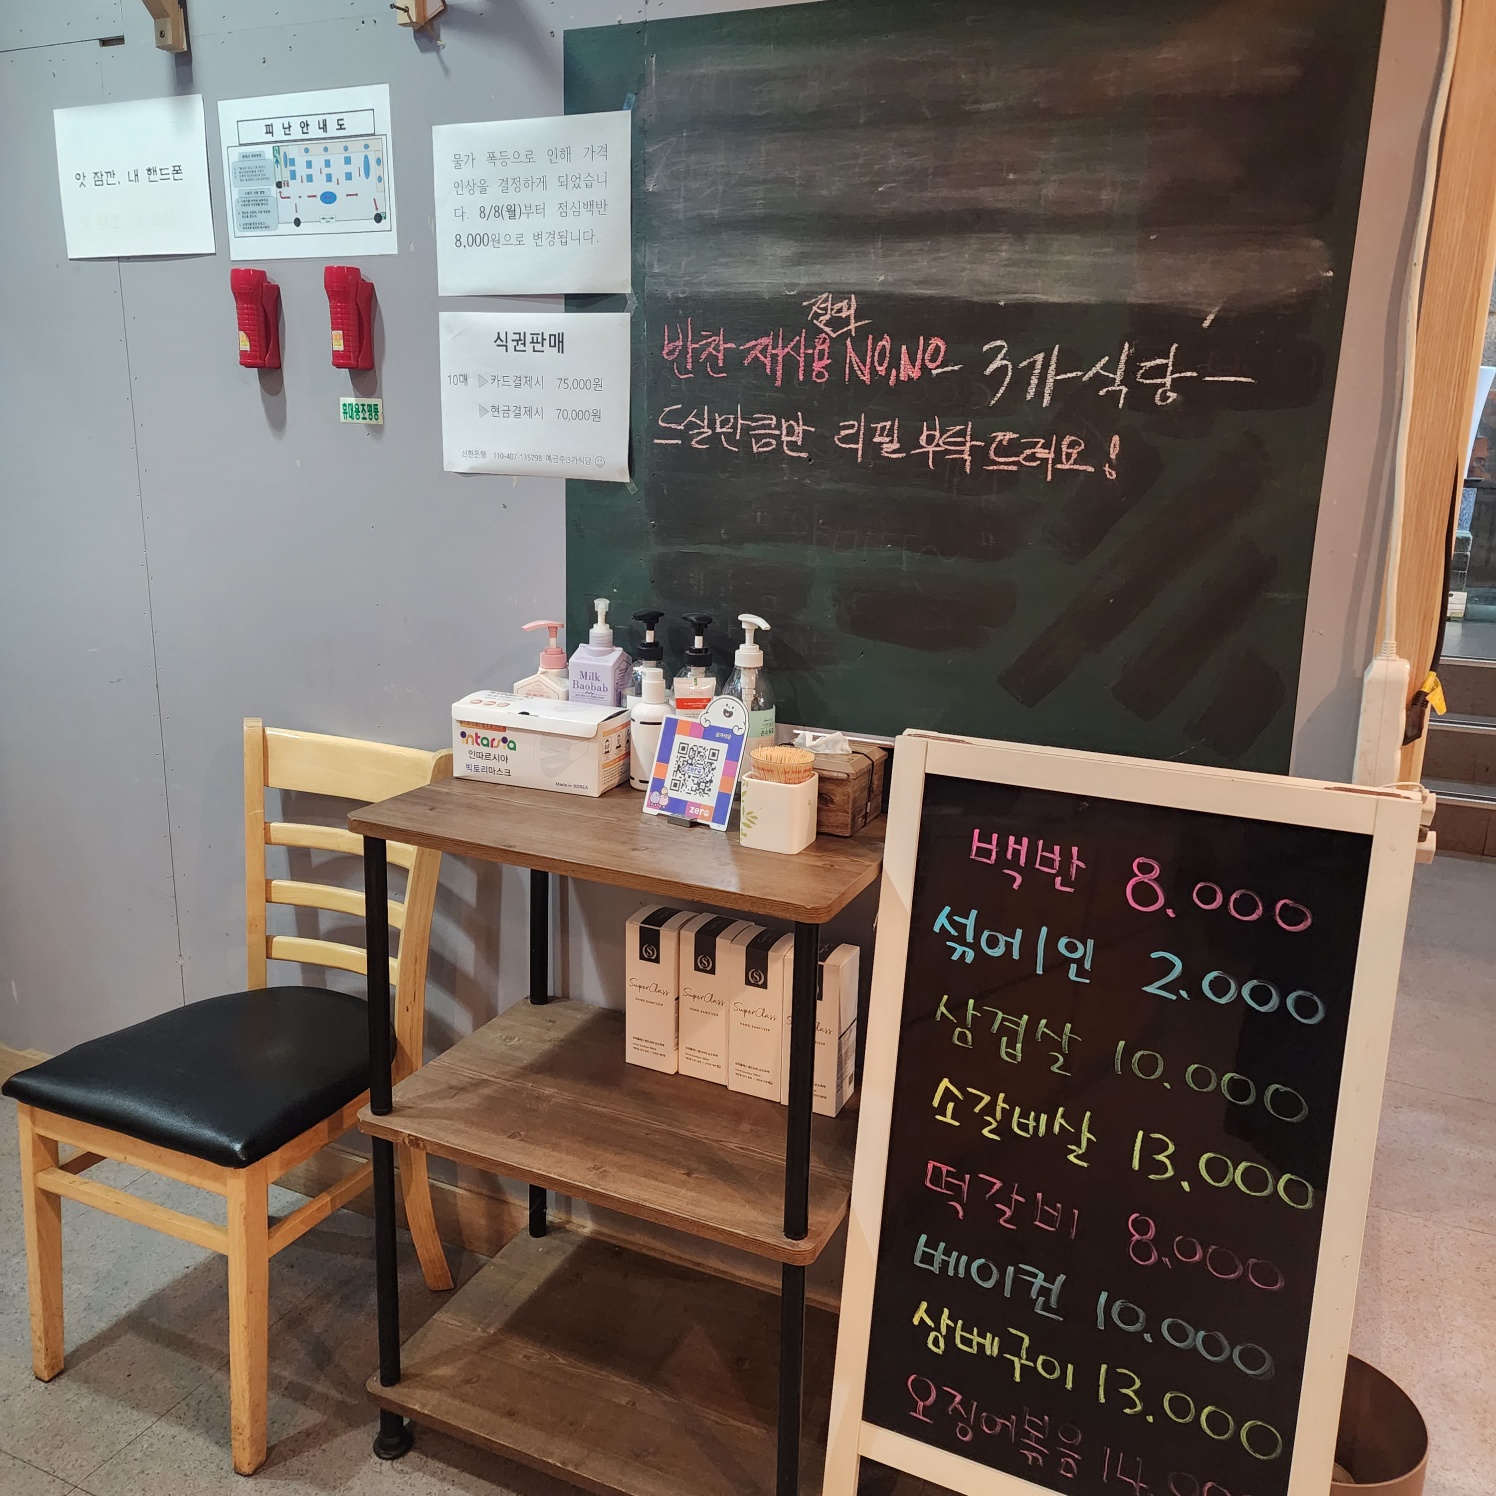 앗 잠깐, 내 핸드폰
피난안내도
휴대용조명등
물가 폭등으로 인해 가격
인상을 결정하게 되었습니
다. 8/8(월)부터 점심백반
8,000원으로 변경됩니다.
식권판매
10매 ▷카드결제시 75,000원
▷현금결제시 70,000원
신한은행 : 110-407-135798 예금주:3가식당 ☺
절대
반찬 재사용 NO,NO- 3가식당-
드실만큼만 리필 부탁드려요!
Milk
Baobab
intarsia
인따르시아
빅토리마스크
Made in KOREA
zero
zero
SuperClass
HAND SANITIZER
SuperClass
HAND SANITIZER
SuperClass
HAND SANITIZER
백반 8.000
섞어1인 2.000
삼겹살 10.000
소갈비살 13.000
떡갈비 8.000
베이컨 10.000
삼베구이 13.000
오징어볶음 14.000